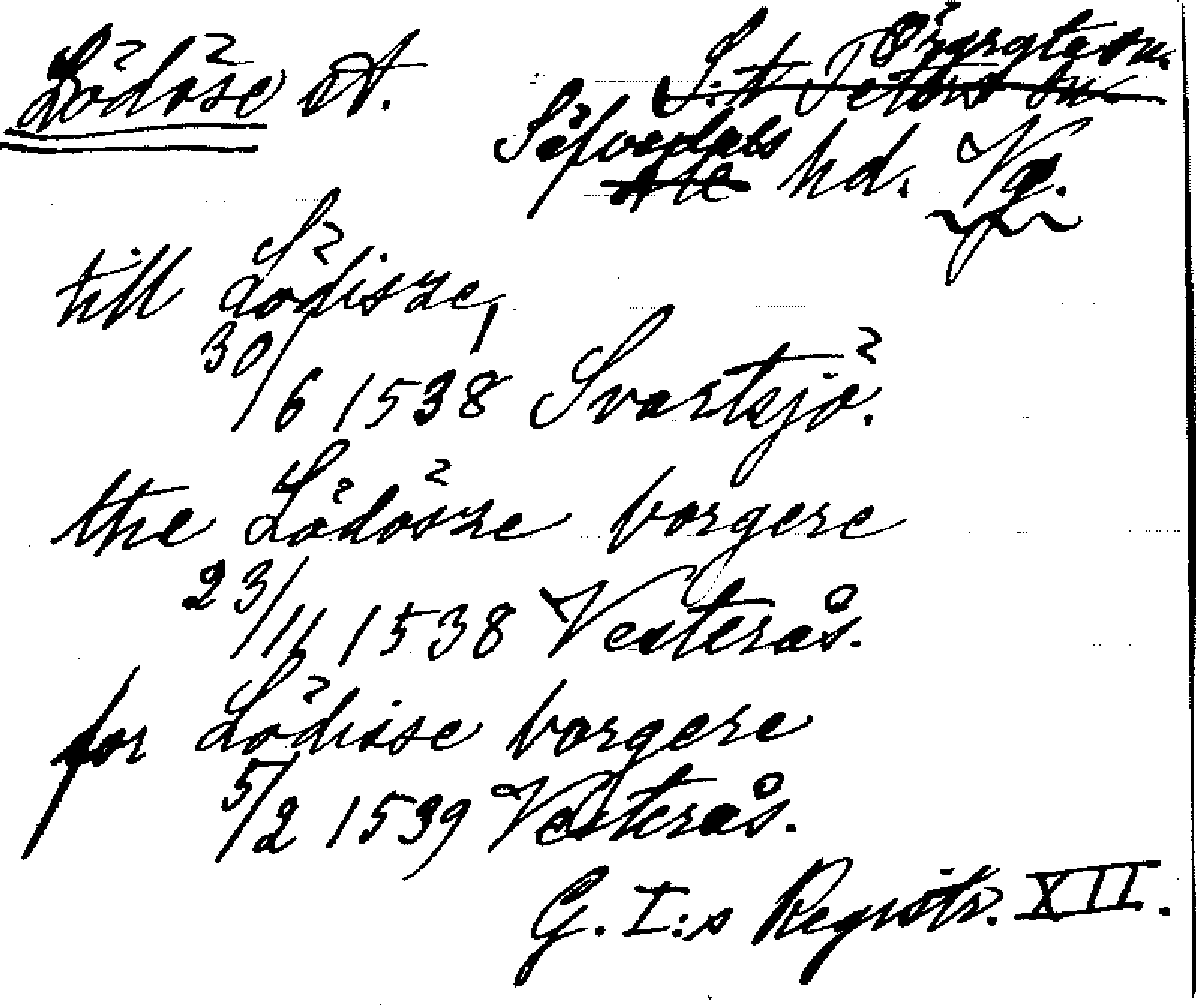 Lödöse St.
Örgryte sn.
S:t Peters sn.
Säfvedals
Ale hd. Vg.
till Lödisze,
30/6 1538 Svartsjö.
the Lödösze borgere
23/11 1538 Vesterås.
for Lödisse borgere
5/2 1539 Vesterås.
G. I:s Registr. XII.